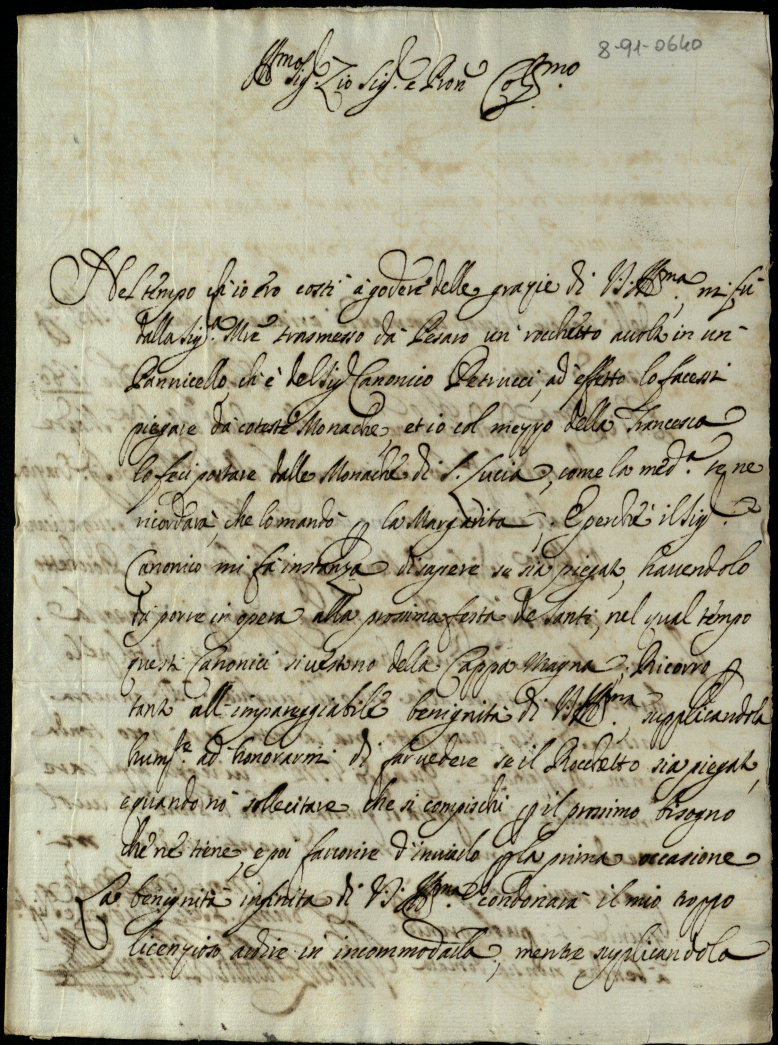 8-91-0640
Ill.mo Sig.r Zio Sig.r e Pron Col.mo
Nel tempo ch'io ero costì à godere delle grazie di V.S. Ill.ma, mi fù
dalla Sig.a Mre trasmesso da Pesaro un rocchetto auolto in un
Pannicello, ch'è del Sig.r Canonico Petrucci, ad effetto lo facessi
piegare da coteste Monache, et io col mezzo della Francesca
lo feci portare dalle Monache di S. Lucia, come la med.a se ne
ricordarà, che lo mandò p la Margarita. E perche il Sig.r
Canonico mi fà instanza di sapere se sia piegato, hauendolo
da porre in opera alla prossima festa de Santi, nel qual tempo
questi Canonici si uestono della Cappa Magna; Ricorro p
tanto all'impareggiabile benignità di V.S. Ill.ma, supplicandola
hum.te ad honorarmi di far uedere se il Rocchetto sia piegato,
e quando nò sollecitare che si compischi p il prossimo bisogno
che ne tiene, e poi fauorire d'inuiarlo p la prima occasione
La benignità infinita di V.S. Ill.ma condonarà il mio troppo
licenzioso ardire in incommodarla, mentre supplicandola